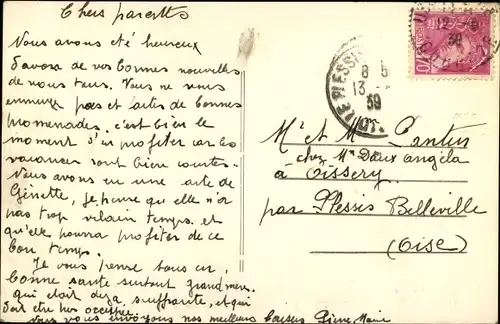 Chers parents
Nous avons été heureux
d'avoir de vos bonnes nouvelles
de nous tous. Vous ne vous
ennuyez pas et faites de bonnes
promenades. c'est bien le
moment d'en profiter car les
vacances sont bien courtes.
Nous avons eu une carte de
Ginette, je pense qu'elle n'a
pas trop vilain temps. et
qu'elle pourra profiter de ce
bon temps.
Je vous pense tous en
bonne santé surtout grand mère
qui était déjà souffrante, et qui
doit être très occupée.
Nous vous envoyons nos meilleurs baisers Pierre Marie
12 - 8
39
8 5
13
39
LE PLESSIS
Mr et Me Cantus
chez Me Doux Angèla
à Oissery
par Plessis Belleville
(Oise)